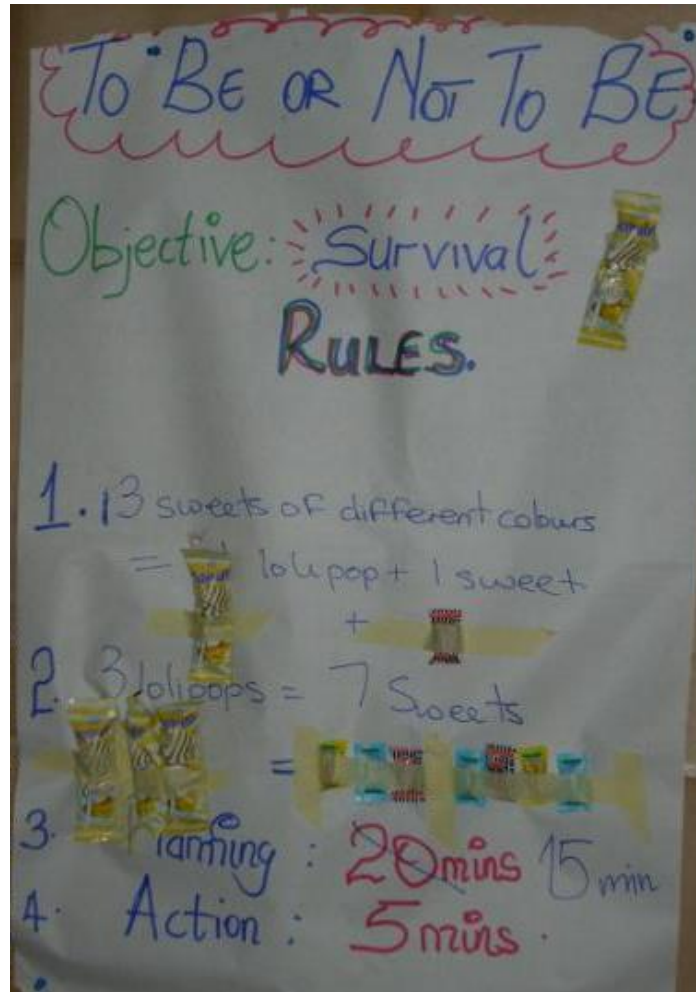 TO BE OR NOT TO BE
Objective: Survival
RULES.
1. 13 sweets of different colours
= lolipop + 1 sweet
+
2. 3 lolipops = 7 Sweets
=
3. Planning : 20mins 15 min
4. Action : 5 mins.